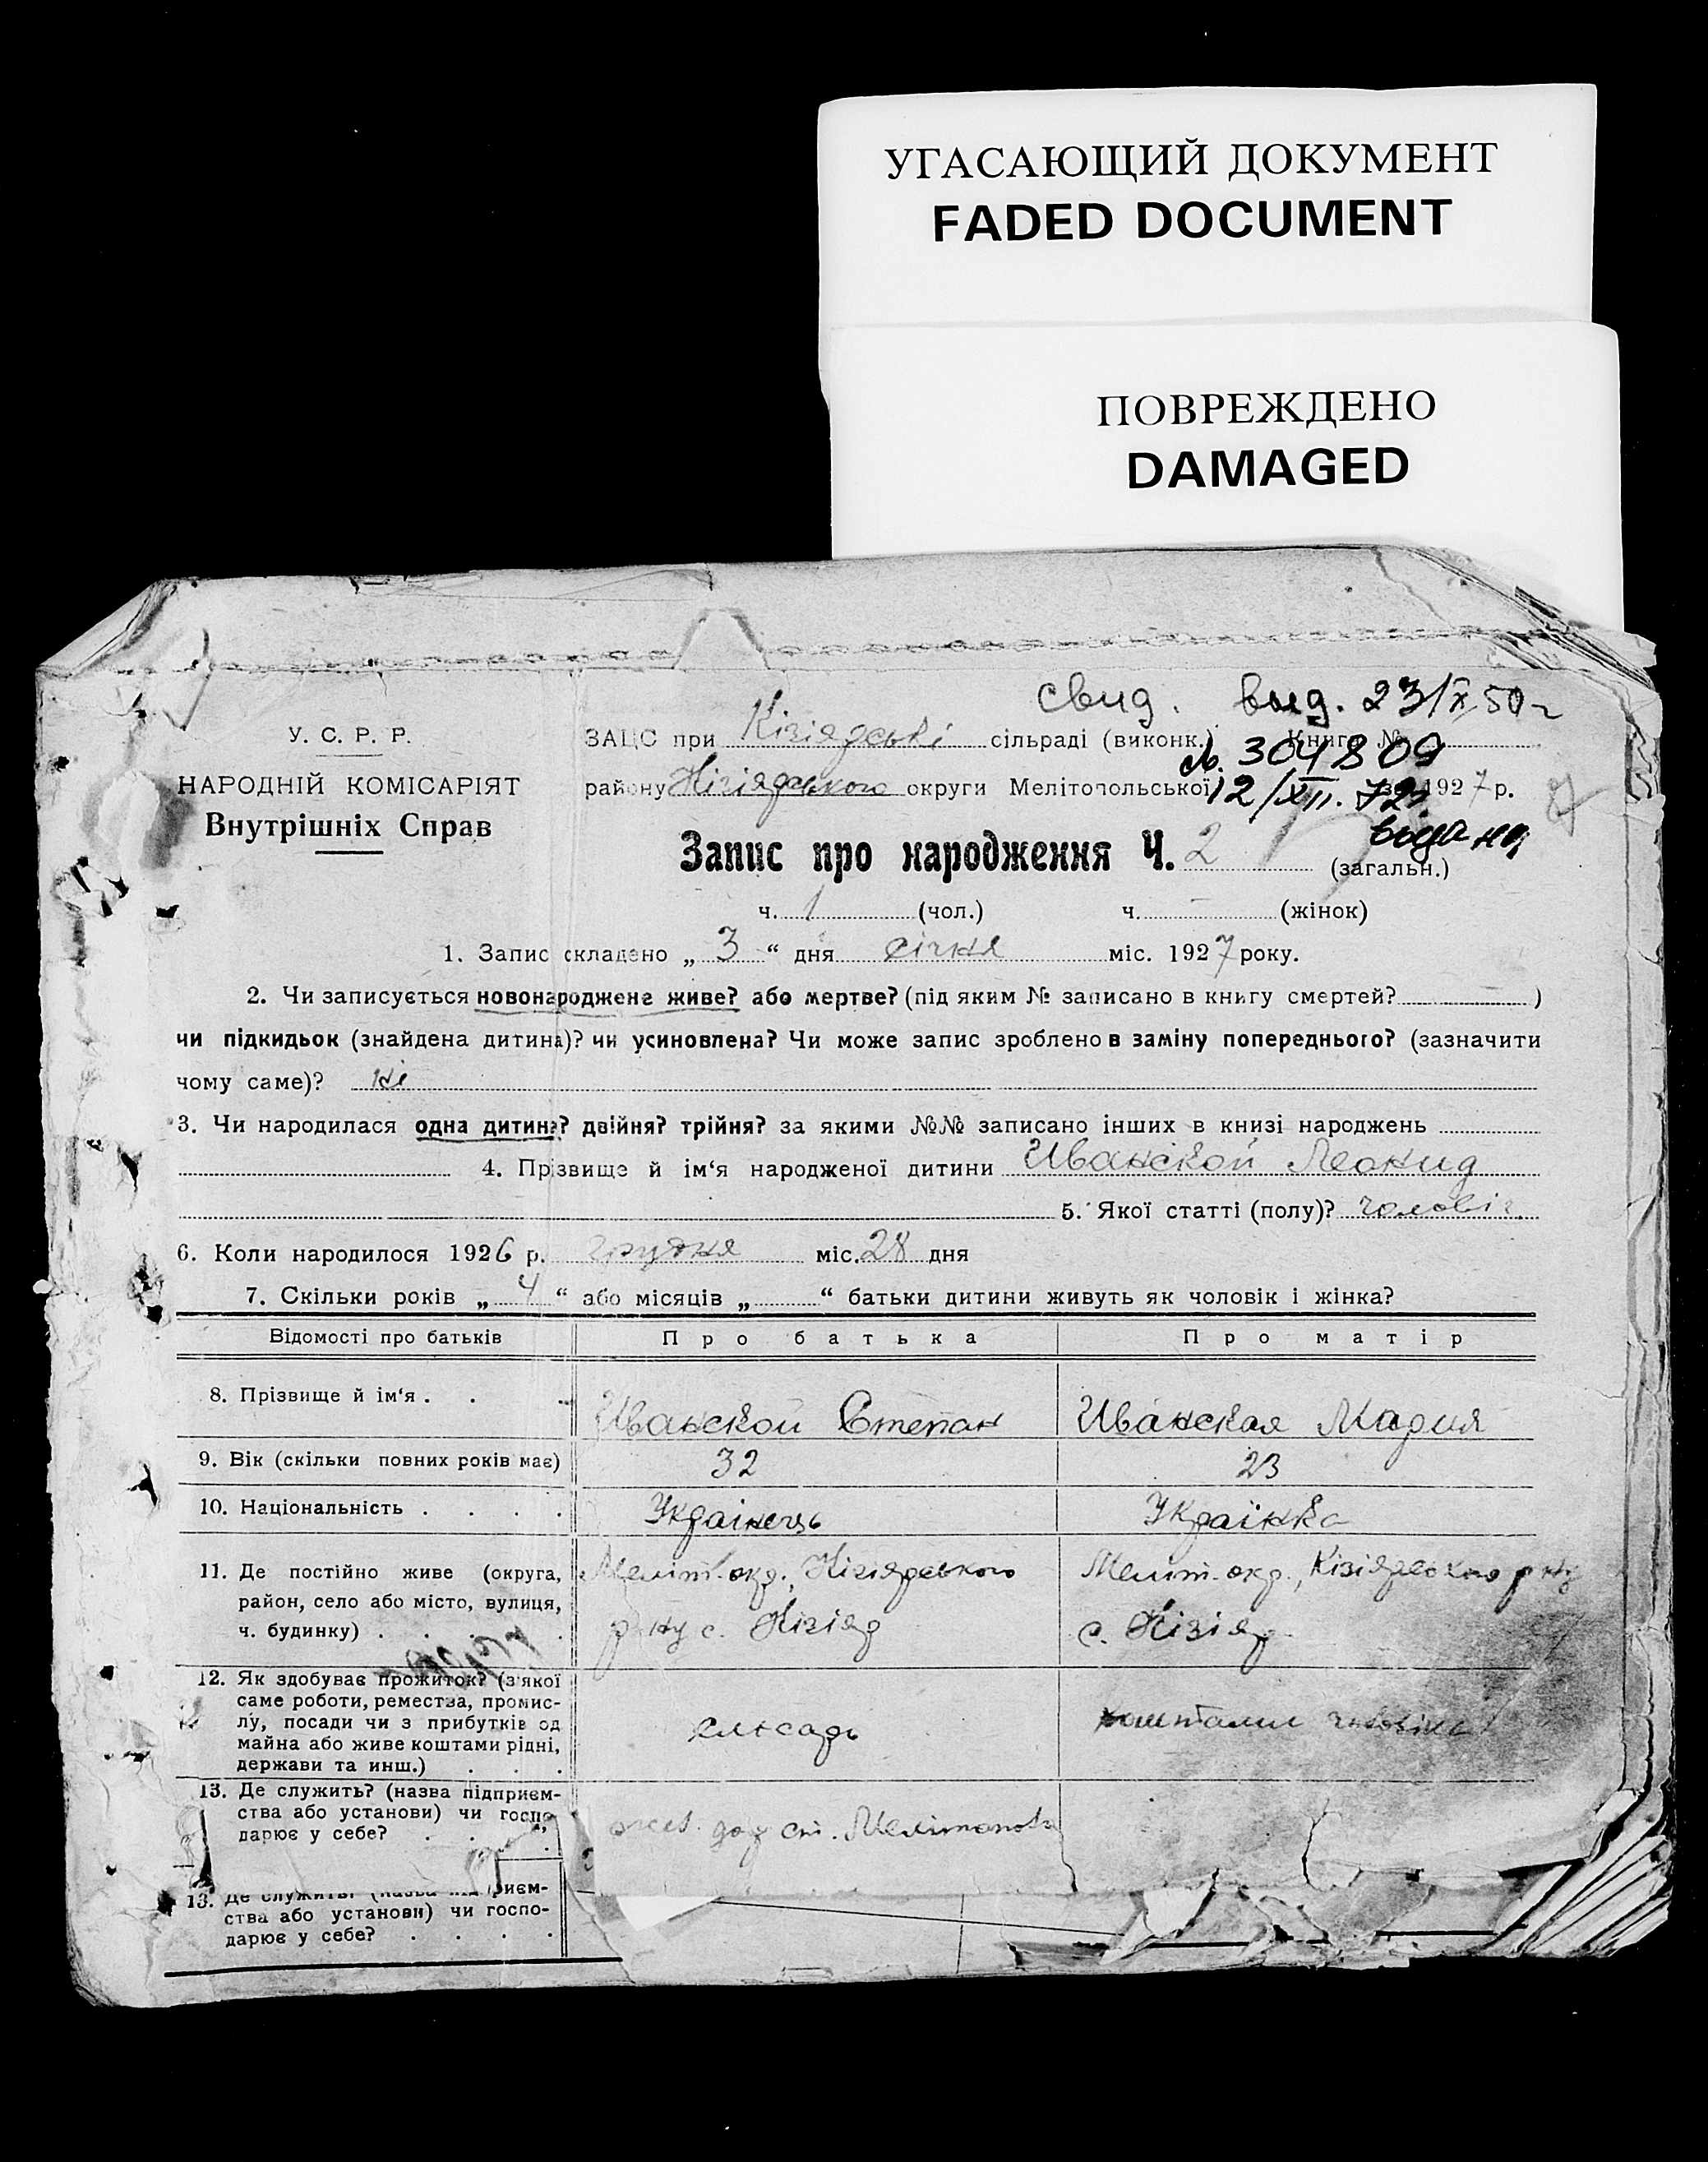 УГАСАЮЩИЙ ДОКУМЕНТ
FADED DOCUMENT
ПОВРЕЖДЕНО
DAMAGED
свид. выд. 23/X 50 г
У. С. Р. Р.
НАРОДНІЙ КОМІСАРІЯТ
Внутрішніх Справ
ЗАЦС при Кізіярські сільраді (виконк.) Книга №
304809
району Кізіярського округи Мелітопольської 1927 р.
12/XII. 72
видана
Запис про народження Ч. 2 (загальн.)
ч. 1 (чол.) ч. - (жінок)
1. Запис складено „ 3 “ дня січня міс. 1927 року.
2. Чи записується новонароджене живе? або мертве? (під яким № записано в книгу смертей? )
чи підкидьок (знайдена дитина)? чи усиновлена? Чи може запис зроблено в заміну попереднього? (зазначити
чому саме)? ні
3. Чи народилася одна дитина? двійня? трійня? за якими №№ записано інших в книзі народжень
4. Прізвище й ім‘я народженої дитини Иванской Леонид
5. Якої статті (полу)? чоловіч.
6. Коли народилося 1926 р. грудня міс. 28 дня
7. Скільки років „ 4 “ або місяців „ “ батьки дитини живуть як чоловік і жінка?
Відомості про батьків Про батька Про матір
8. Прізвище й ім‘я . . Иванской Степан Иванская Мария
9. Вік (скільки повних років має) 32 23
10. Національність . . . . Українець Українка
11. Де постійно живе (округа,
район, село або місто, вулиця,
ч. будинку) . . . .
Меліт. окр., Кізіярського
р-ну с. Кізіяр
Меліт. окр., Кізіярського р-ну
с. Кізіяр
12. Як здобуває прожиток? (з якої
саме роботи, ремества, промис-
лу, посади чи з прибутків од
майна або живе коштами рідні,
держави та инш.) . . .
слюсарь
коштами чоловіка
13. Де служить? (назва підприєм-
ства або установи) чи госпо-
дарює у себе? . . .
ст. Мелітополь
13. Де служить? (назва підприєм-
ства або установи) чи госпо-
дарює у себе? . . . .